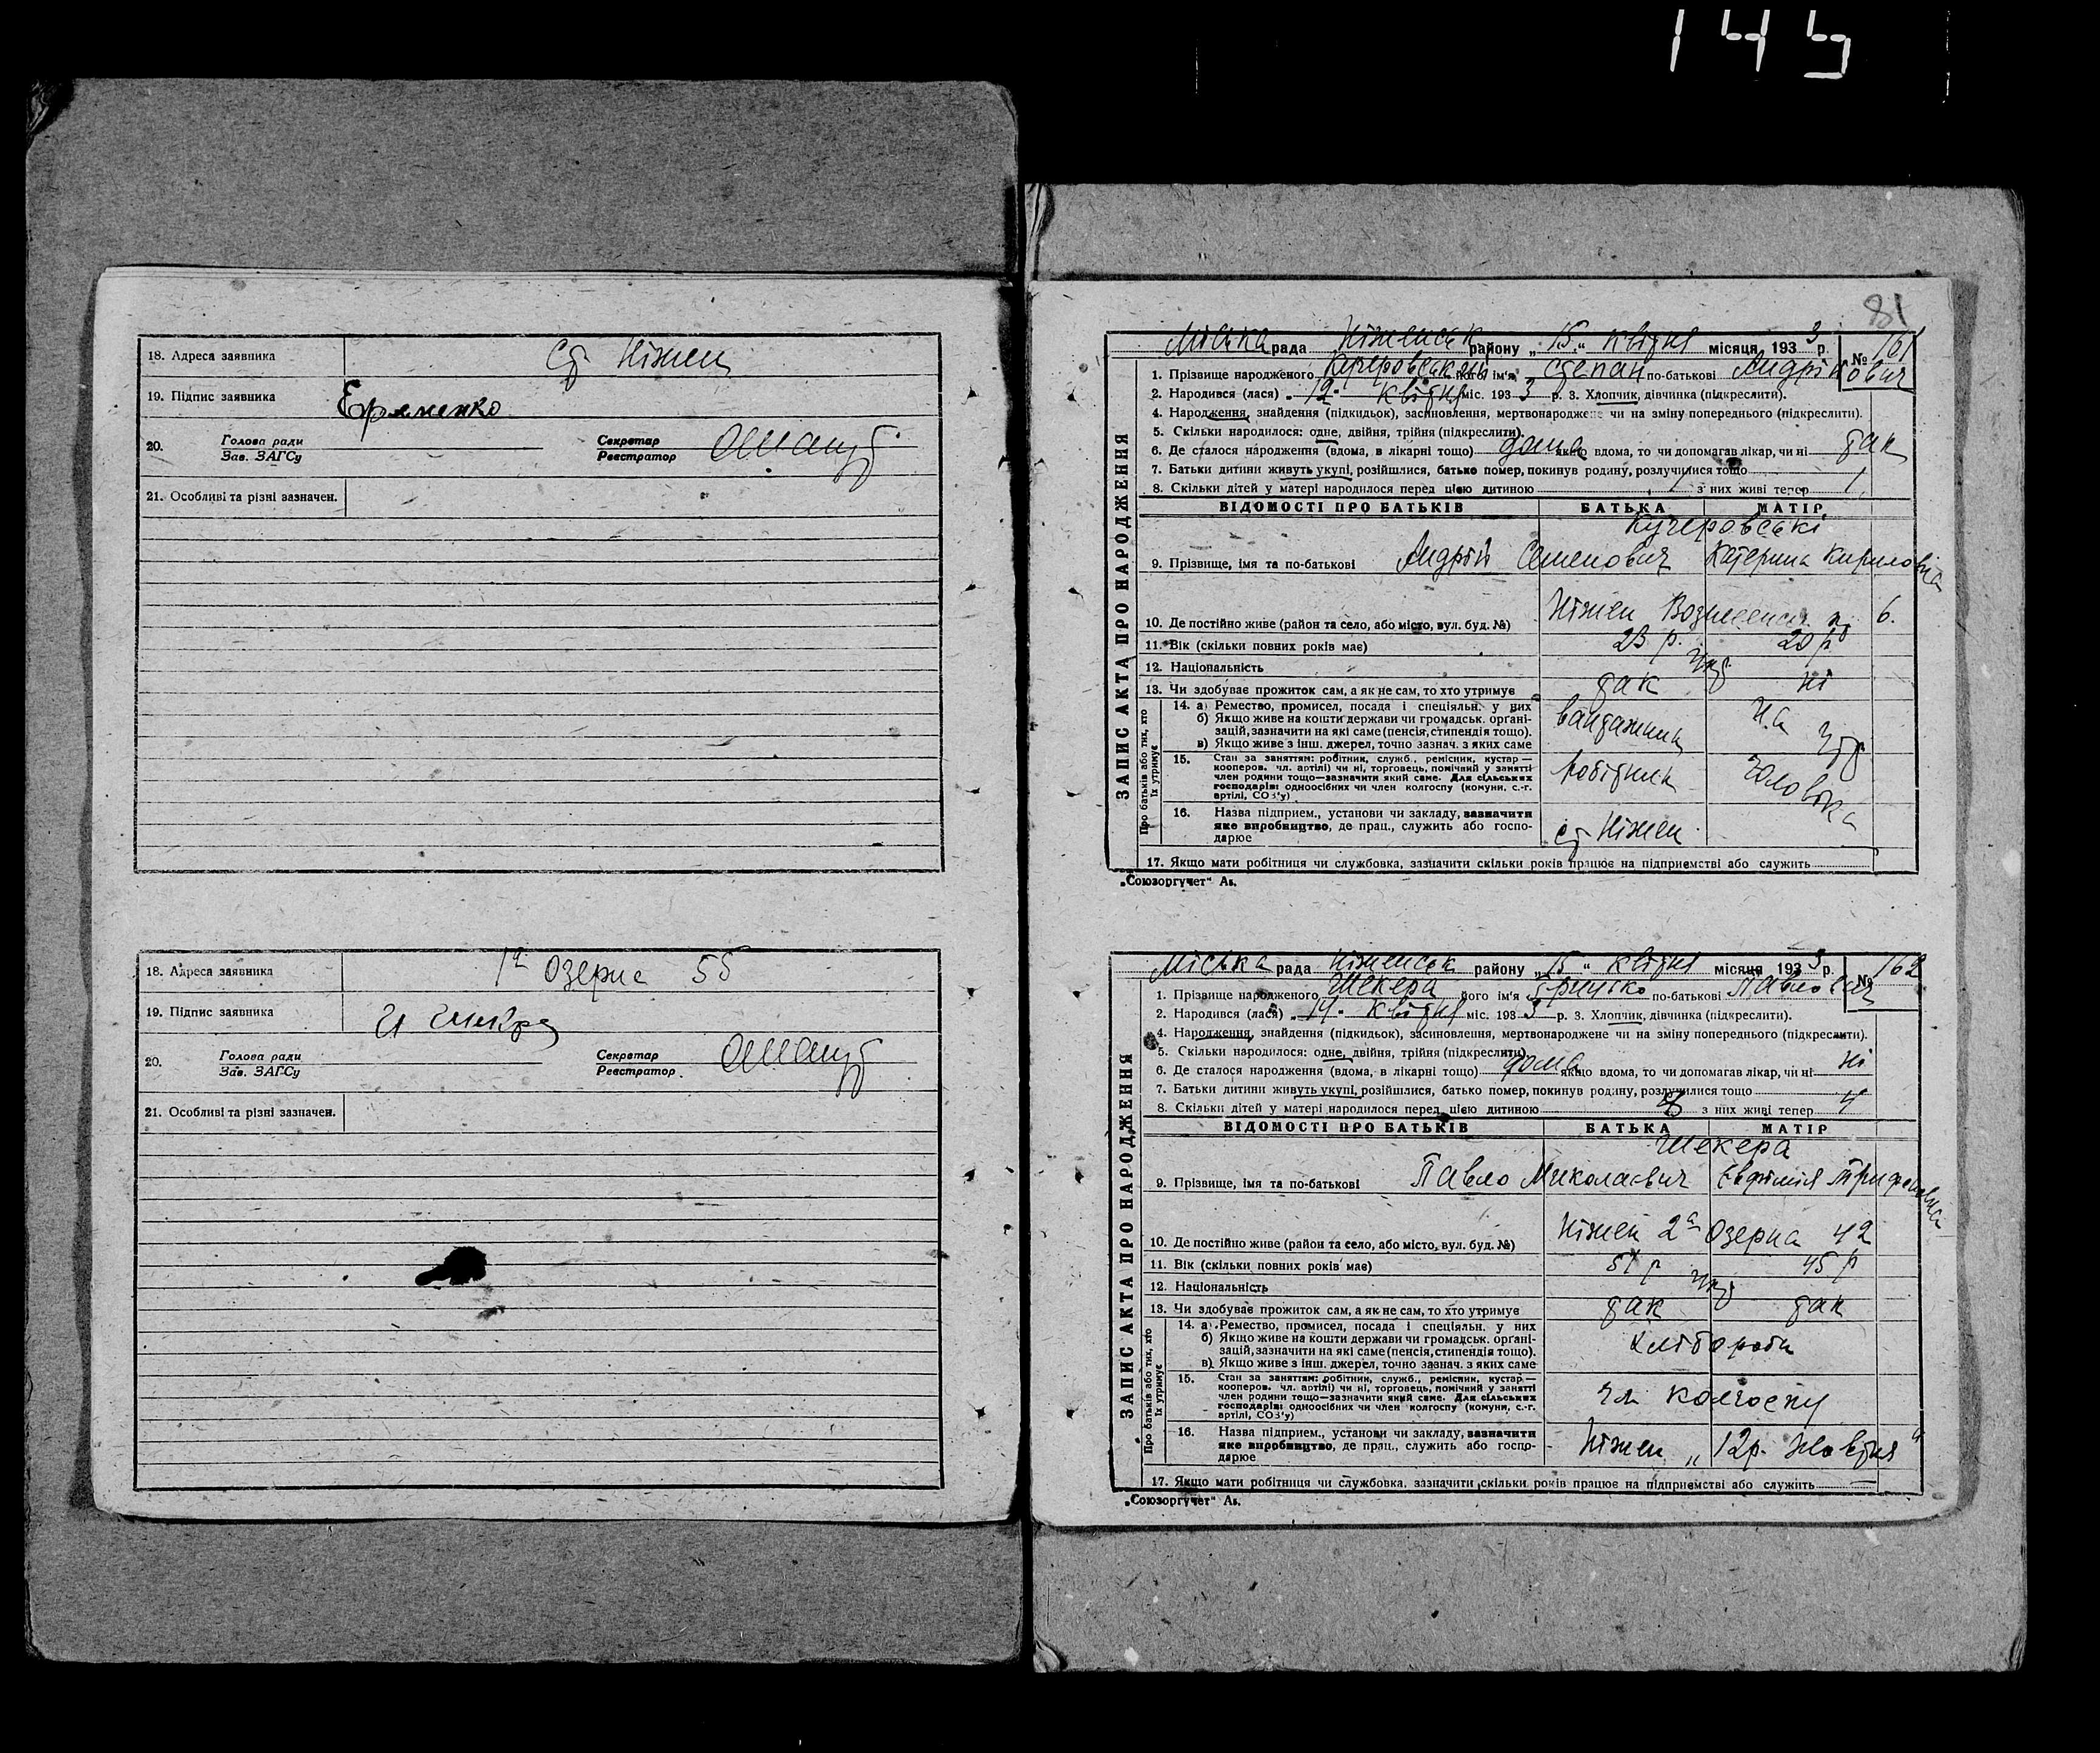 145
18. Адреса заявника ст Ніжен
19. Підпис заявника Єременко
20. Голова ради Секретар
Зав. ЗАГСу Реєстратор
21. Особливі та різні зазначен.
18. Адреса заявника 1а Озерна 55
19. Підпис заявника
20. Голова ради Секретар
Зав. ЗАГСу Реєстратор
21. Особливі та різні зазначен.
81
ЗАПИС АКТА ПРО НАРОДЖЕННЯ
Міська рада Ніженськ району „15“ квітня місяця 1933 р. № 161
1. Прізвище народженого Кучеровський його ім'я Степан по-батькові Андрійович
2. Народився (лася) „12“ квітня міс. 1933 р. 3. Хлопчик, дівчинка (підкреслити).
4. Народження, знайдення (підкидьок), засиновлення, мертвонароджене чи на зміну попереднього (підкреслити).
5. Скільки народилося: одне, двійня, трійня (підкреслити).
6. Де сталося народження (вдома, в лікарні тощо) дома якщо вдома, то чи допомагав лікар, чи ні так
7. Батьки дитини живуть укупі, розійшлися, батько помер, покинув родину, розлучилися тощо
8. Скільки дітей у матері народилося перед цією дитиною 1 з них живі тепер 1
ВІДОМОСТІ ПРО БАТЬКІВ БАТЬКА МАТІР
Кучеровські
9. Прізвище, імя та по-батькові Андрій Семенович Катерина Кириловна
10. Де постійно живе (район та село, або місто, вул. буд. №) Ніжен Вознесенськ 6.
11. Вік (скільки повних років має) 23 р. 20 р
12. Національність Укр
13. Чи здобуває прожиток сам, а як не сам, то хто утримує так ні
Про батьків або тих, хто їх утримує
14. а) Ремество, промисел, посада і спеціяльн. у них вантажник на утр
б) Якщо живе на кошти держави чи громадськ. орґані-
зацій, зазначити на які саме (пенсія, стипендія тощо).
в) Якщо живе з інш. джерел, точно зазнач. з яких саме
15. Стан за заняттям: робітник, служб., ремісник, кустар — робітник чоловіка
кооперов. чл. артілі) чи ні, торговець, помічний у занятті
член родини тощо—зазначити який саме. Для сільських
господарів: одноосібних чи член колгоспу (комуни, с.-г.
артілі, СОЗ'у)
16. Назва підприєм., установи чи закладу, зазначити
яке виробництво, де прац., служить або госпо-
дарює ст Ніжен
17. Якщо мати робітниця чи службовка, зазначити скільки років працює на підприємстві або служить
„Союзоргучет“ Ав.
ЗАПИС АКТА ПРО НАРОДЖЕННЯ
Міська рада Ніженськ району „15“ квітня місяця 1933 р. № 162
1. Прізвище народженого Шекера його ім'я Грицько по-батькові Павлович
2. Народився (лася) „14“ квітня міс. 1933 р. 3. Хлопчик, дівчинка (підкреслити).
4. Народження, знайдення (підкидьок), засиновлення, мертвонароджене чи на зміну попереднього (підкреслити).
5. Скільки народилося: одне, двійня, трійня (підкреслити).
6. Де сталося народження (вдома, в лікарні тощо) дома якщо вдома, то чи допомагав лікар, чи ні ні
7. Батьки дитини живуть укупі, розійшлися, батько помер, покинув родину, розлучилися тощо
8. Скільки дітей у матері народилося перед цією дитиною з них живі тепер 4
ВІДОМОСТІ ПРО БАТЬКІВ БАТЬКА МАТІР
Шекера
9. Прізвище, імя та по-батькові Павло Миколаєвич Євфимія Трифоновна
10. Де постійно живе (район та село, або місто, вул. буд. №) Ніжен 2а Озерна 42
11. Вік (скільки повних років має) 51 р 45 р
12. Національність Укр
13. Чи здобуває прожиток сам, а як не сам, то хто утримує так так
Про батьків або тих, хто їх утримує
14. а) Ремество, промисел, посада і спеціяльн. у них хлібороби
б) Якщо живе на кошти держави чи громадськ. орґані-
зацій, зазначити на які саме (пенсія, стипендія тощо).
в) Якщо живе з інш. джерел, точно зазнач. з яких саме
15. Стан за заняттям: робітник, служб., ремісник, кустар — чл колгоспу
кооперов. чл. артілі) чи ні, торговець, помічний у занятті
член родини тощо—зазначити який саме. Для сільських
господарів: одноосібних чи член колгоспу (комуни, с.-г.
артілі, СОЗ'у)
16. Назва підприєм., установи чи закладу, зазначити
яке виробництво, де прац., служить або госпо- Ніжен „12 р. Жовтня“
дарює
17. Якщо мати робітниця чи службовка, зазначити скільки років працює на підприємстві або служить
„Союзоргучет“ Ав.